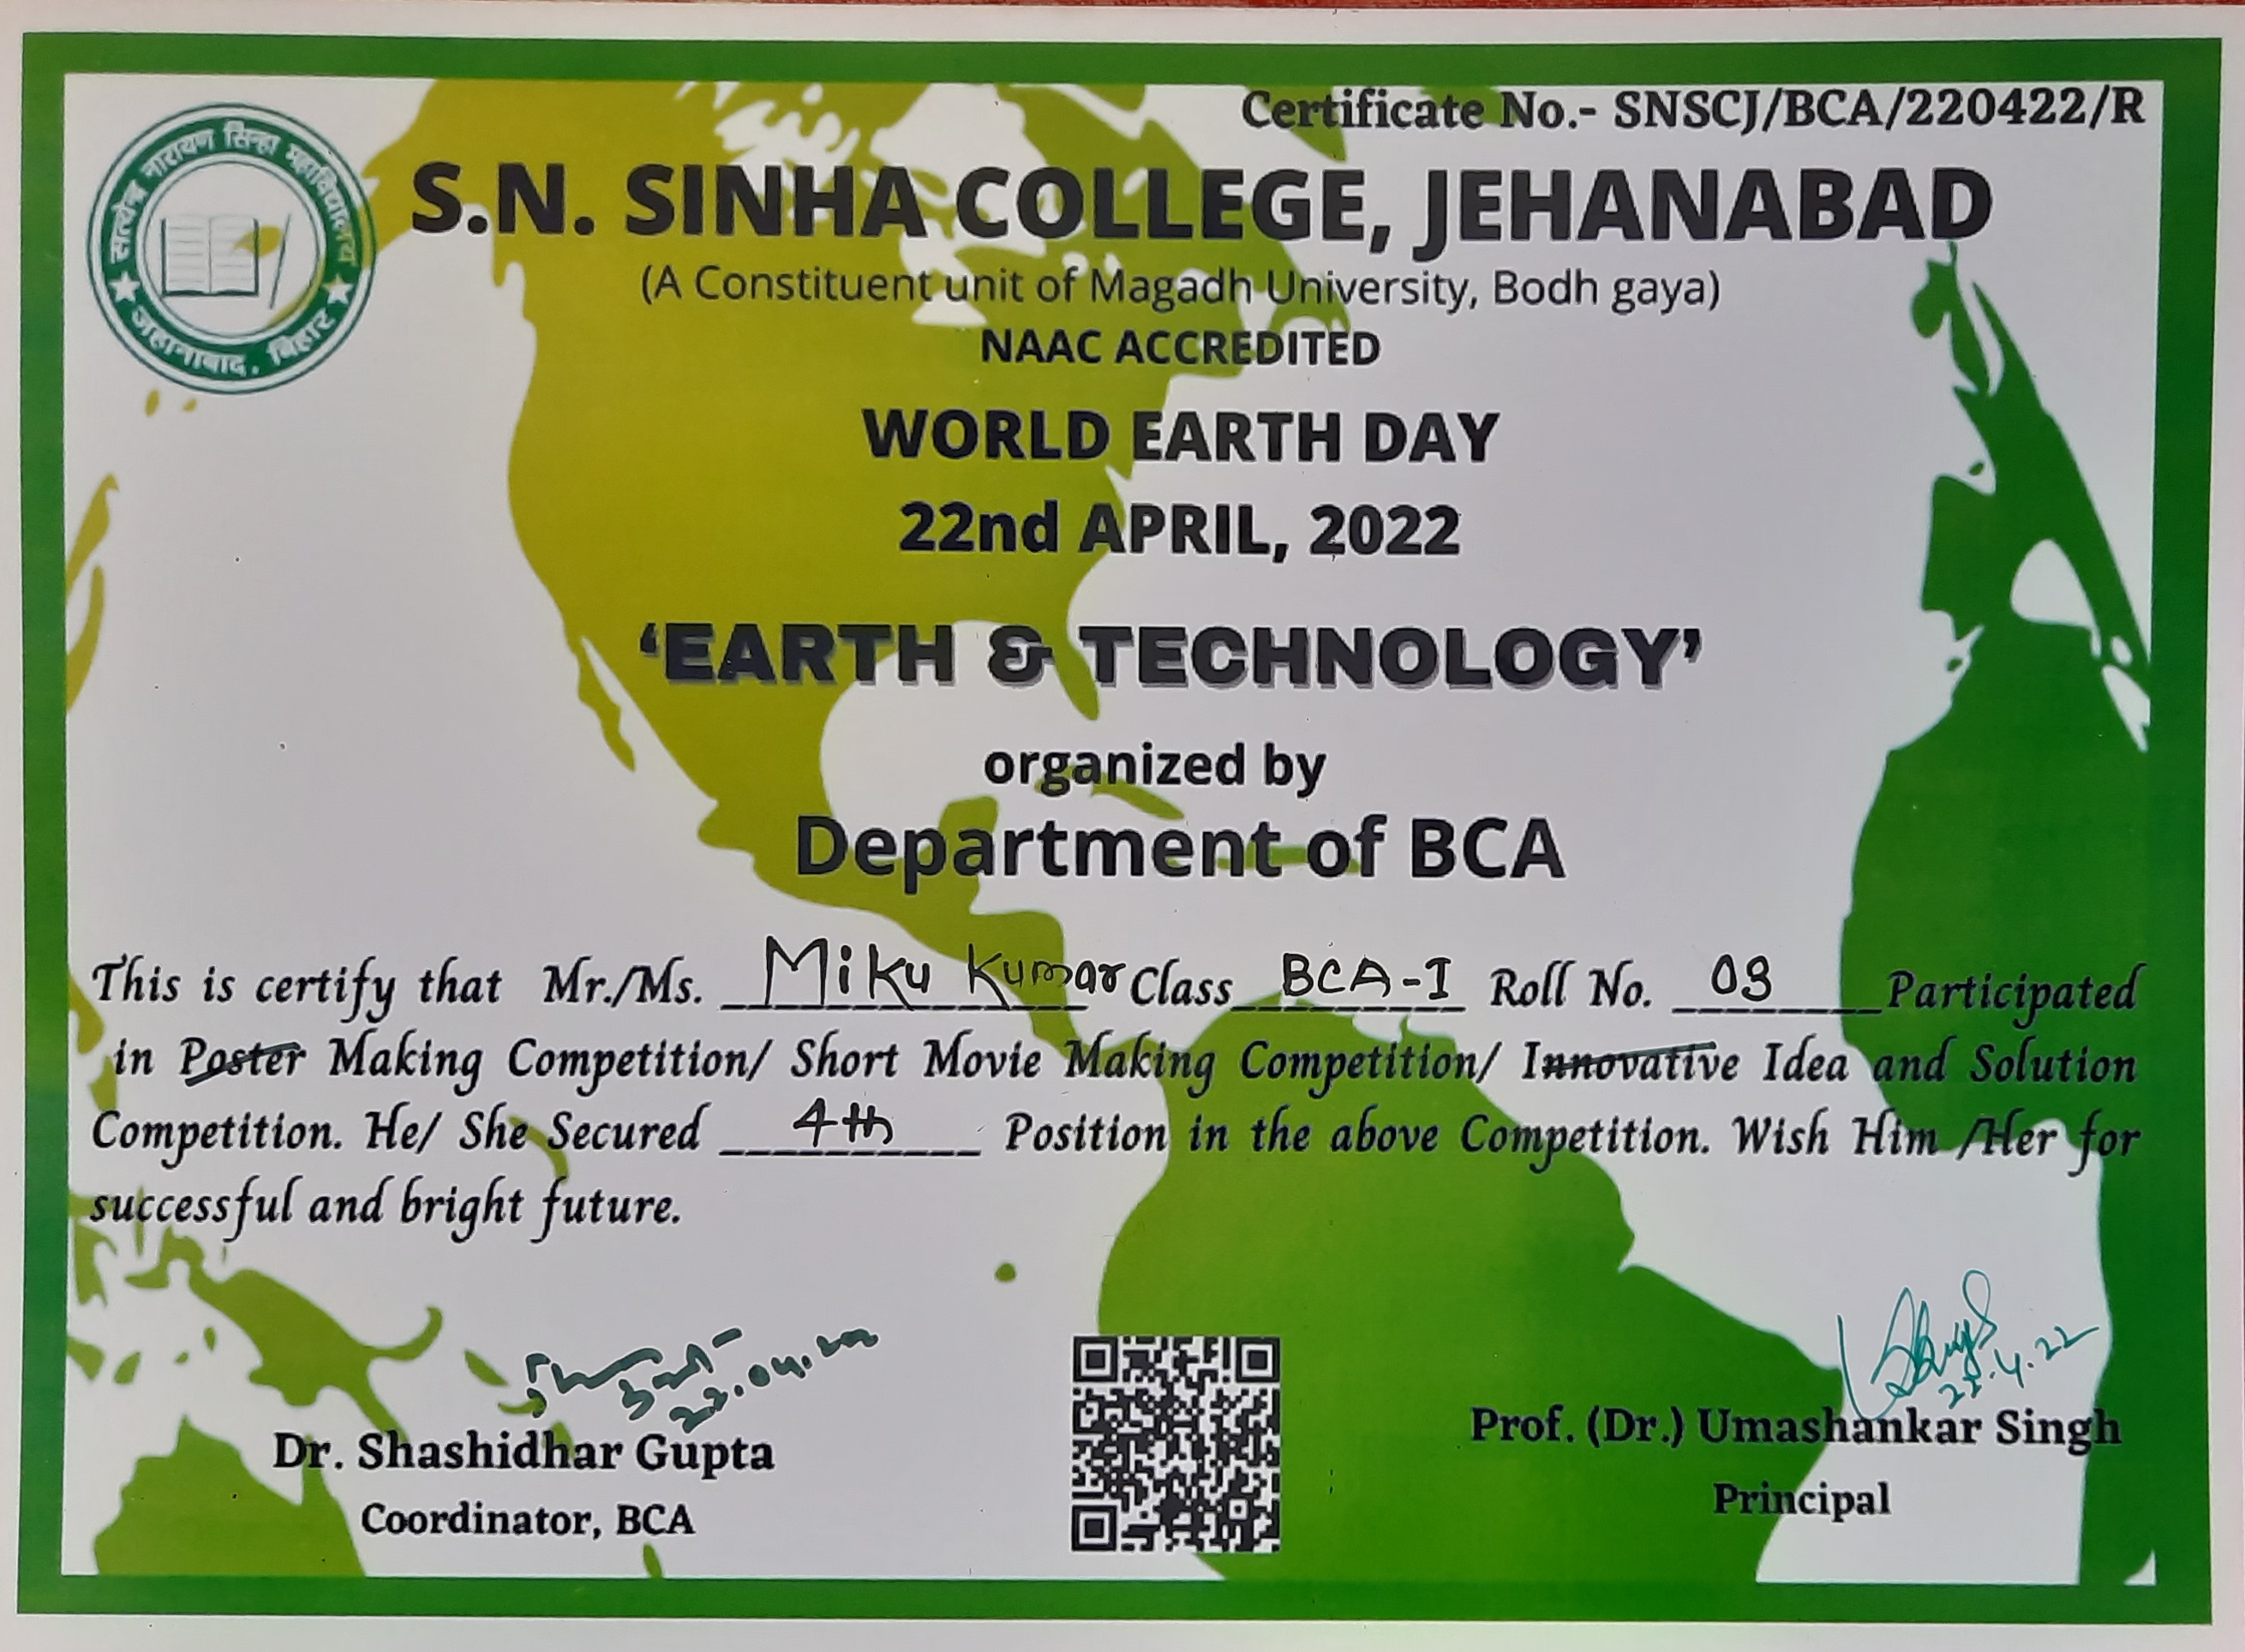 Certificate No.- SNSCJ/BCA/220422/R
सत्येन्द्र नारायण सिन्हा महाविद्यालय
जहानाबाद, बिहार
S.N. SINHA COLLEGE, JEHANABAD
(A Constituent unit of Magadh University, Bodh gaya)
NAAC ACCREDITED
WORLD EARTH DAY
22nd APRIL, 2022
‘EARTH & TECHNOLOGY’
organized by
Department of BCA
This is certify that Mr./Ms. Miku Kumar Class BCA-I Roll No. 03 Participated
in Poster Making Competition/ Short Movie Making Competition/ Innovative Idea and Solution
Competition. He/ She Secured 4th Position in the above Competition. Wish Him /Her for
successful and bright future.
22.4.22
Dr. Shashidhar Gupta
Coordinator, BCA
Prof. (Dr.) Umashankar Singh
Principal